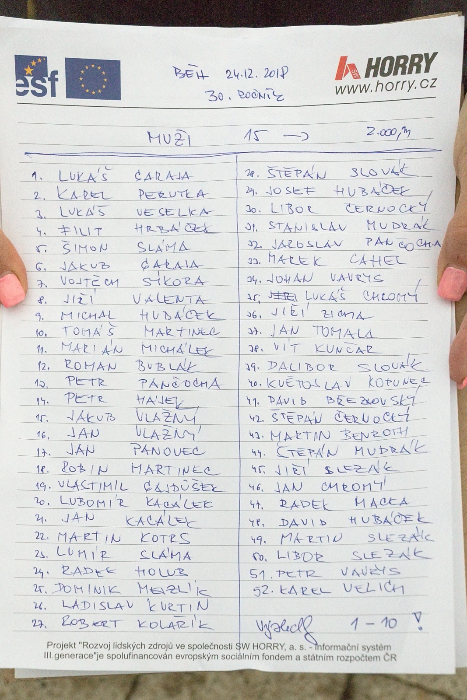 esf
HORRY
www.horry.cz
BĚH 24.12.2018
30. ROČNÍK
MUŽI 15 → 2.000,m
1. LUKÁŠ CARAJA
2. KAREL PERUTKA
3. LUKÁŠ VESELKA
4. FILIT HRBÁČEK
5. ŠIMON SLÁMA
6. JAKUB CARAJA
7. VOJTĚCH SÝKORA
8. JIŘÍ VALENTA
9. MICHAL HUBÁČEK
10. TOMÁŠ MARTINEC
11. MARIÁN MICHÁLEK
12. ROMAN BUBLÁK
13. PETR PANČOCHA
14. PETR HÁJEK
15. JAKUB VLAŽNÝ
16. JAN VLAŽNÝ
17. JAN PANOVEC
18. ROBIN MARTINEC
19. VLASTIMIL GAJDŮŠEK
20. LUBOMÍR KACÁLEK
21. JAN KACÁLEK
22. MARTIN KOTRS
23. LUMÍR SLÁMA
24. RADEK HOLUB
25. DOMINIK
26. LADISLAV KURTIN
27. ROBERT KOLAŘÍK
28. ŠTEPÁN SLOVÁK
29. JOSEF HUBÁČEK
30. LIBOR ČERNOCKÝ
31. STANISLAV MUDRÁK
32. JAROSLAV PANČOCHA
33. MAREK CAHEL
34. JOHAN VAVRYS
35. LUKÁŠ CHROMÝ
36. JIŘÍ ZICHA
37. JAN TOMALA
38. VÍT KUNČAR
39. DALIBOR SLOVÁK
40. KVĚTOSLAV KOPUNEC
41. DAVID BŘEZOVSKÝ
42. ŠTEPÁN ČERNOCKÝ
43. MARTIN BENROTH
44. ŠTEPÁN MUDRÁK
45. JIŘÍ SLEZÁK
46. JAN CHROMÝ
47. RADEK MACKA
48. DAVID HUBÁČEK
49. MARTIN SLEZÁK
50. LIBOR SLEZÁK
51. PETR VAVRYS
52. KAREL VELICH
1-10 !
Projekt "Rozvoj lidských zdrojů ve společnosti SW HORRY, a. s. - Informační systém
III.generace"je spolufinancován evropským sociálním fondem a státním rozpočtem ČR